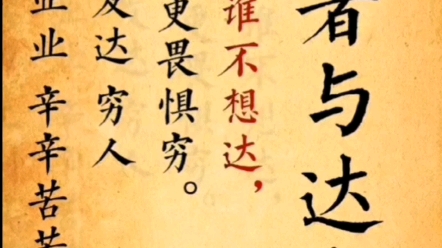 者与达
谁不想达，
更畏惧穷。
发达 穷人
业业 辛辛苦苦